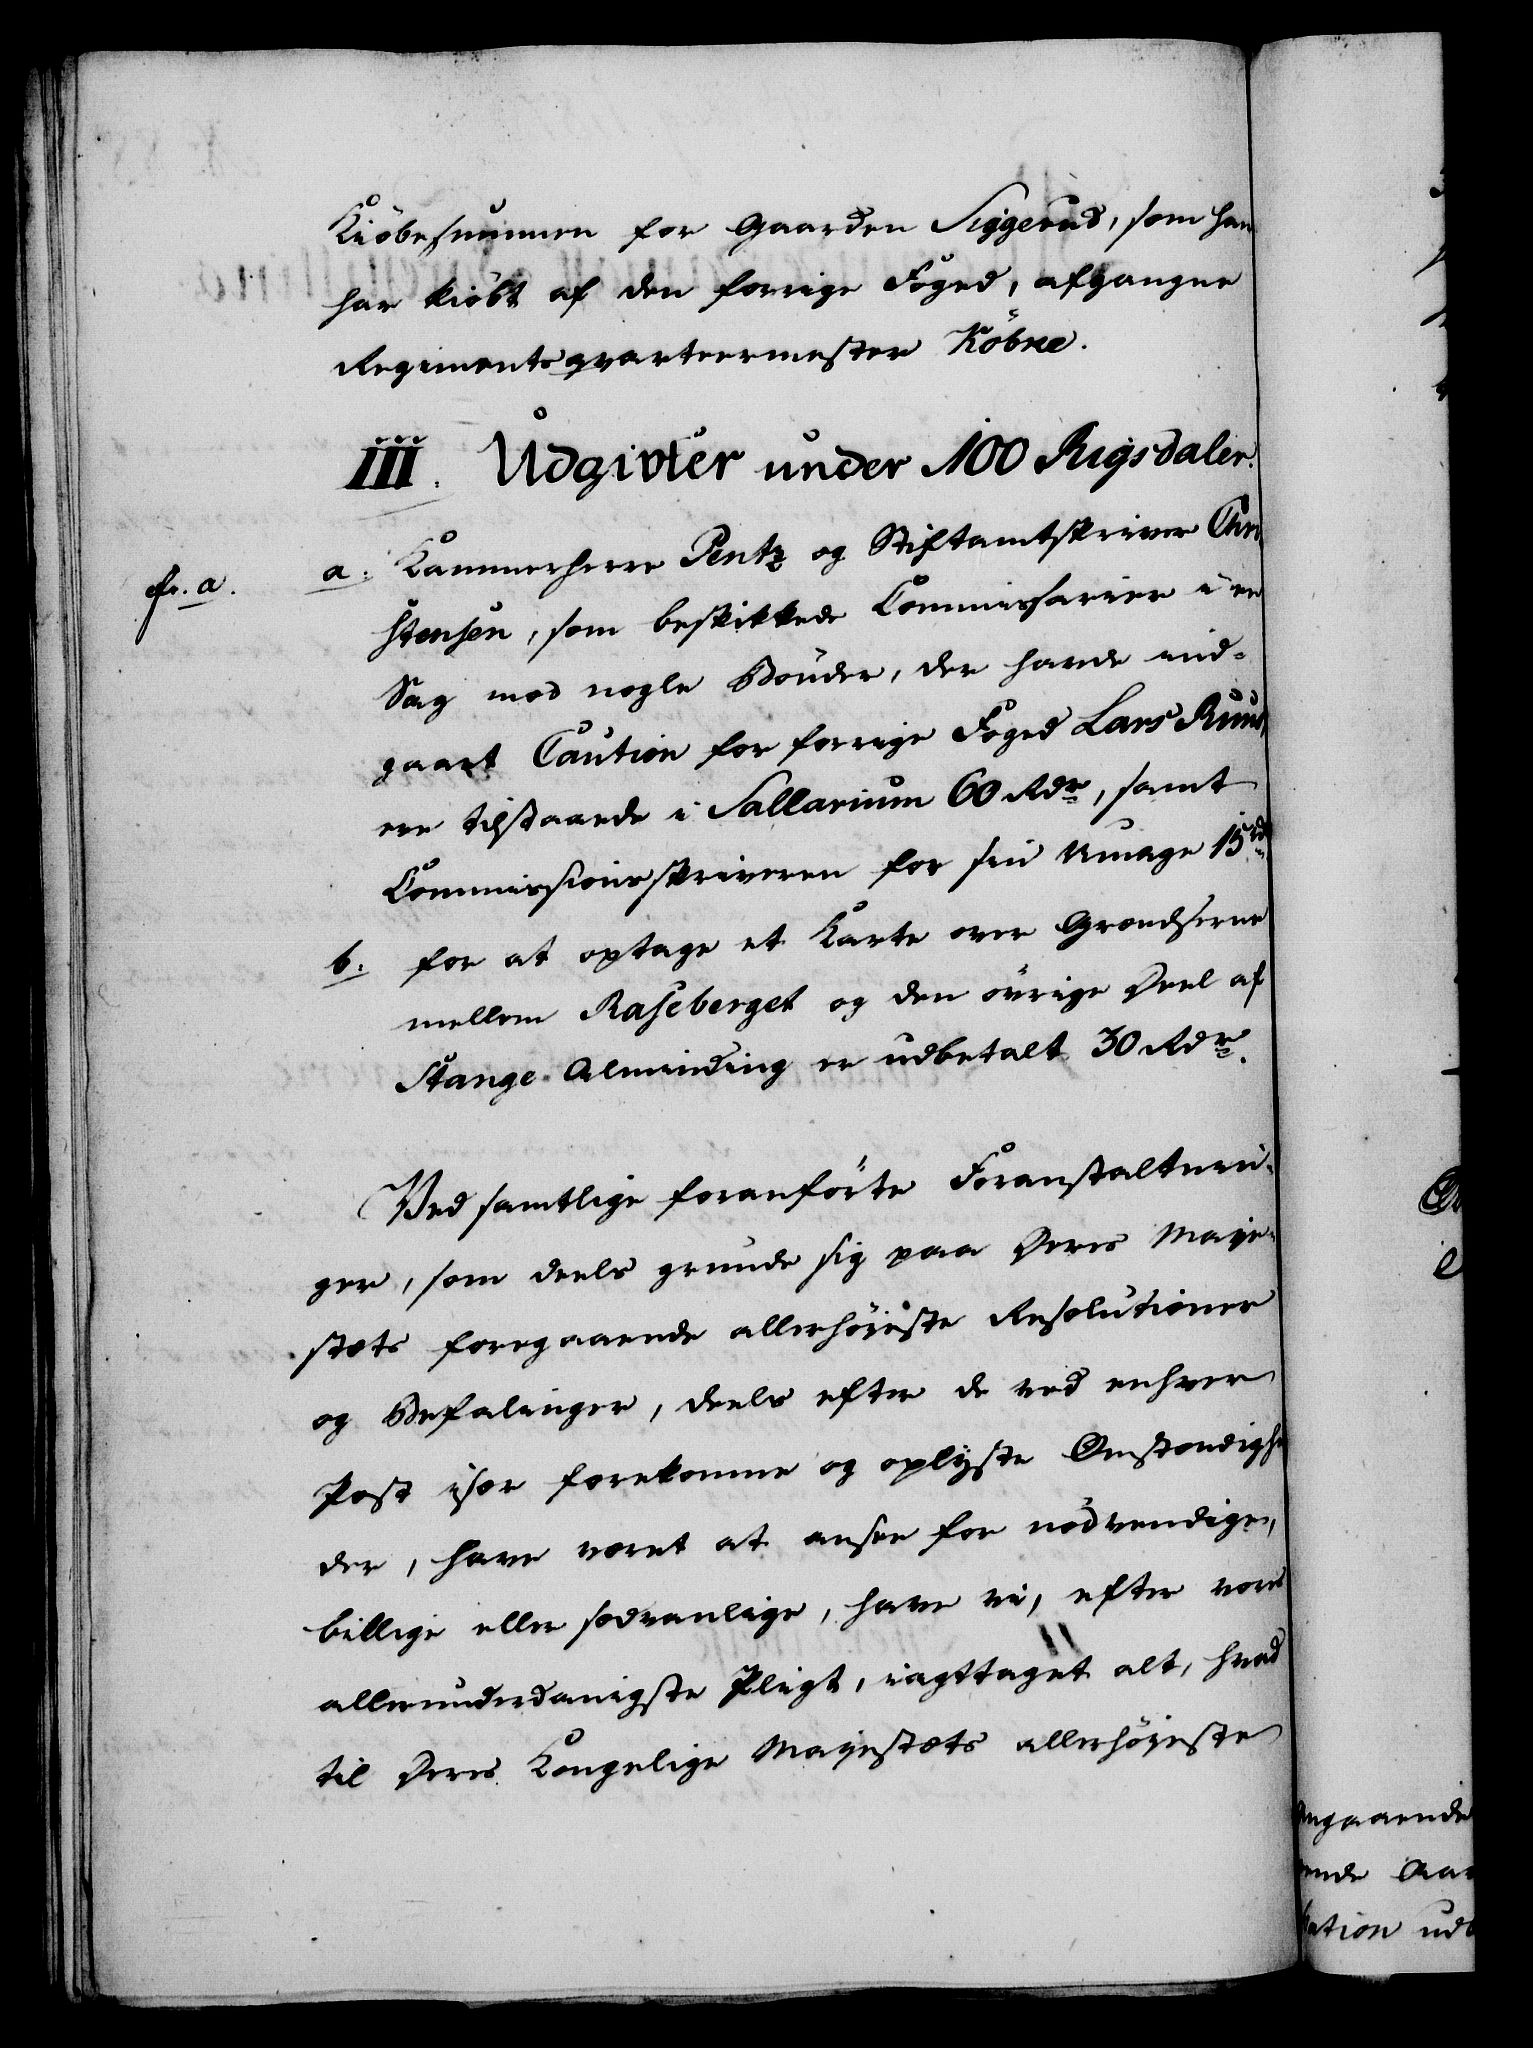 Kiöbesummen for Gaarden Siggerud, som han
har kiöbt af den forrige Foged, afgangne
Regimentsqvarteermester Köbke.
III. Udgivter under 100 Rigsdaler.
fr. a.
a. Kammerherre Pentz og Stiftamtskriver Chri
stensen, som beskikkede Commissarier i en
Sag mod nogle Bönder, der havde ind-
gaaet Caution for forrige Foged Lars Ruud,
ere tilstaaede i Sallarium 60 Rdr, samt
Commissionsskriveren for sin Umage 15 rd
b. for at optage et Karte over Grændserne
mellem Raseberget og den övrige Deel af
Stange Alminding er udbetalt 30 Rdr.
Ved samtlige foranförte Foranstaltnin-
ger, som deels grunde sig paa Deres Maje-
stæts foregaaende allerhöieste Resolutioner
og Befalinger, deels efter de ved enhver
Post især forekomne og oplyste Omstændighe
der, have været at ansee for nödvendige,
billige eller sædvanlige, have vi, efter vores
allerunderdanigste Pligt, iagttaget alt, hvad
til Deres Kongelige Majestæts allerhöyeste
ngaaende
ende Aar
ation udb